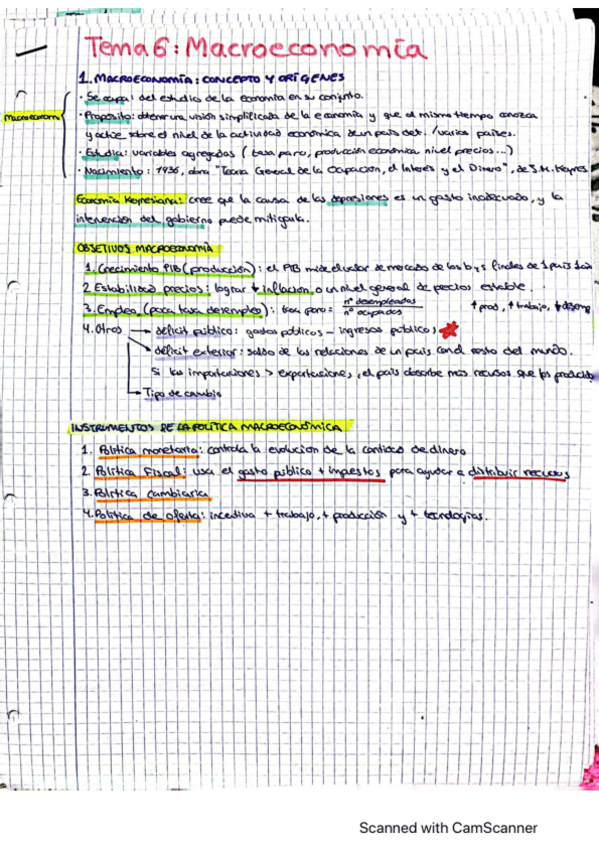 Tema 6: Macroeconomía
1. MACROECONOMÍA: CONCEPTO Y ORÍGENES
· Se ocupa: del estudio de la economía en su conjunto.
Macroeconom
· Propósito: obtener una visión simplificada de la economía y que al mismo tiempo conozca
y actúe sobre el nivel de la actividad económica de un país det. /varios países.
· Estudia: variables agregadas (tasa paro, producción económica nivel precios...)
· Nacimiento: 1936, obra "Teoría General de la Ocupación, el Interés y el Dinero", de J.M. Keynes
Economía Keynesiana: cree que la causa de las depresiones es un gasto inadecuado, y la
intervención del gobierno puede mitigarla.
OBJETIVOS MACROECONOMÍA
1. Crecimiento PIB (producción): el PIB mide el valor de mercado de los b y s finales de 1 país 1 año
2. Estabilidad precios: lograr ↓ inflación o un nivel general de precios estable.
3. Empleo (poca tasa desempleo): tasa paro = nº desempleados / nº ocupados ↑ prod, ↑ trabajo, ↓ desemp
4. Otros → déficit público: gastos públicos - ingresos públicos
déficit exterior: saldo de las relaciones de un país con el resto del mundo.
Si las importaciones > exportaciones, el país absorbe más recursos que los producidos
Tipo de cambio
INSTRUMENTOS DE LA POLÍTICA MACROECONÓMICA
1. Política monetaria: controla la evolución de la cantidad de dinero
2. Política Fiscal: usa el gasto público + impuestos para ayudar a distribuir recursos
3. Política cambiaria
4. Política de oferta: incentiva + trabajo, + producción y + tecnologías.
Scanned with CamScanner